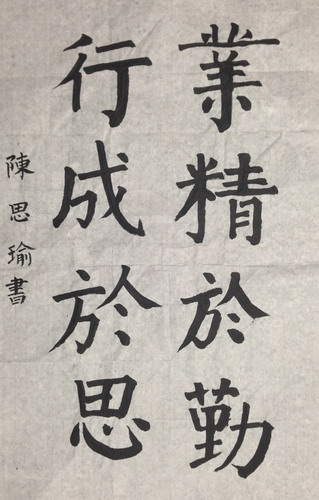 業精於勤
行成於思
陳思瑜書